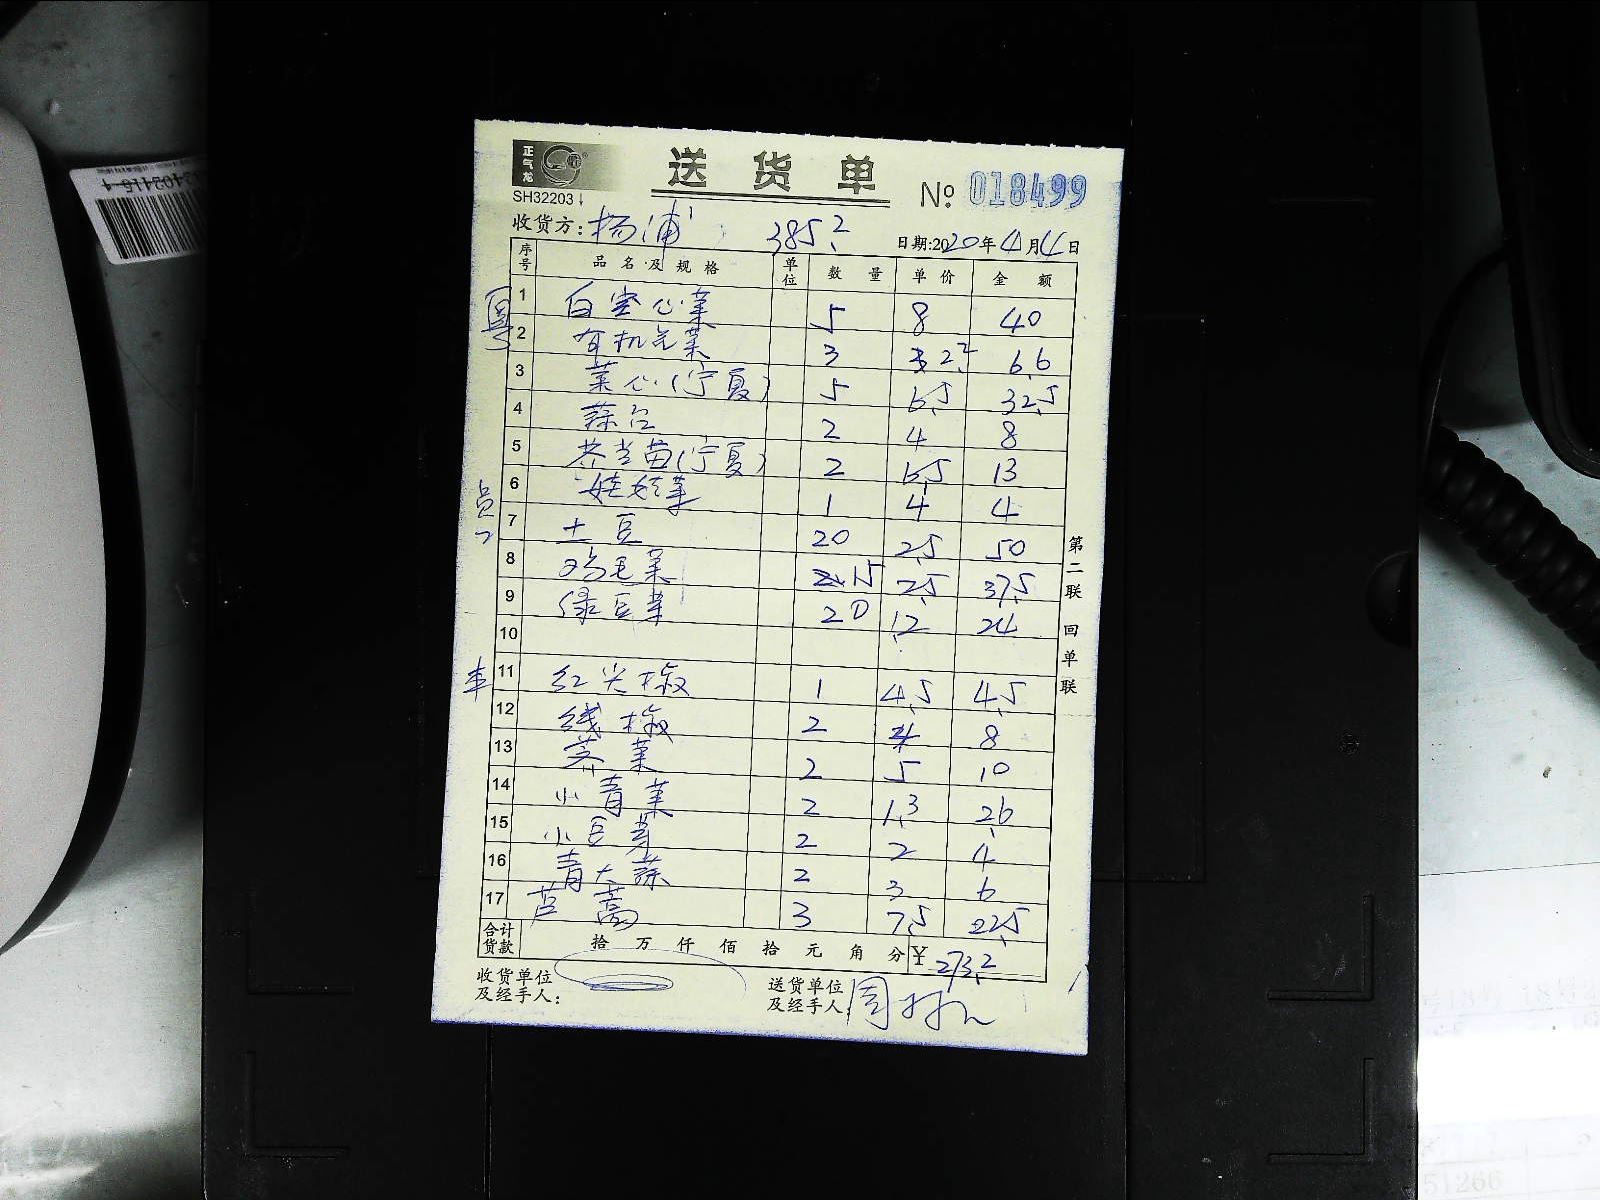 正气龙
SH32203
送货单
№ 018499
收货方: 杨浦 385.2
日期:2020年4月4日
序号 品名及规格 单位 数量 单价 金额
1 白空心菜 5 8 40
2 有机花菜 3 2.2 6.6
3 菜心(宁夏) 5 6.5 32.5
4 蒜台 2 4 8
5 芥兰苗(宁夏) 2 6.5 13
6 娃娃菜 1 4 4
员工
7 土豆 20 2.5 50
8 鸡毛菜 15 2.5 37.5
9 绿豆芽 20 1.2 24
10
11 红尖椒 1 4.5 4.5
12 线椒 2 4 8
13 芥菜 2 5 10
14 小青菜 2 1.3 2.6
15 小豆芽 2 2 4
16 青大蒜 2 3 6
17 芦蒿 3 7.5 22.5
合计货款 拾万仟佰拾元角分 ¥ 273.2
收货单位及经手人:
送货单位及经手人:
第二联 回单联
51266